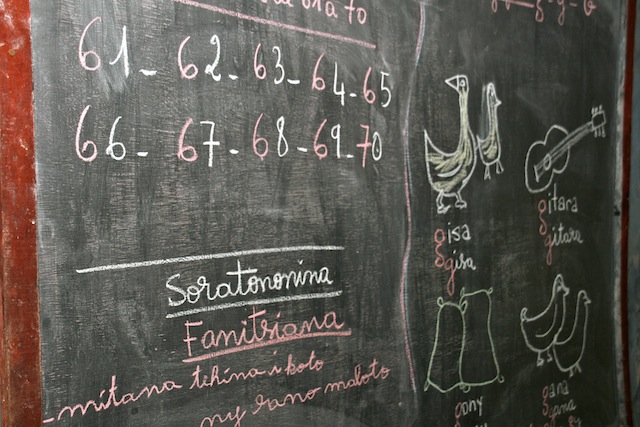 61 - 62 - 63 - 64 - 65
66 - 67 - 68 - 69 - 70
Soratononina
Fanitsiana
- mitana tehina i koto
ny rano maloto
gisa
gisa
gitara
gitara
gony
gana
gana